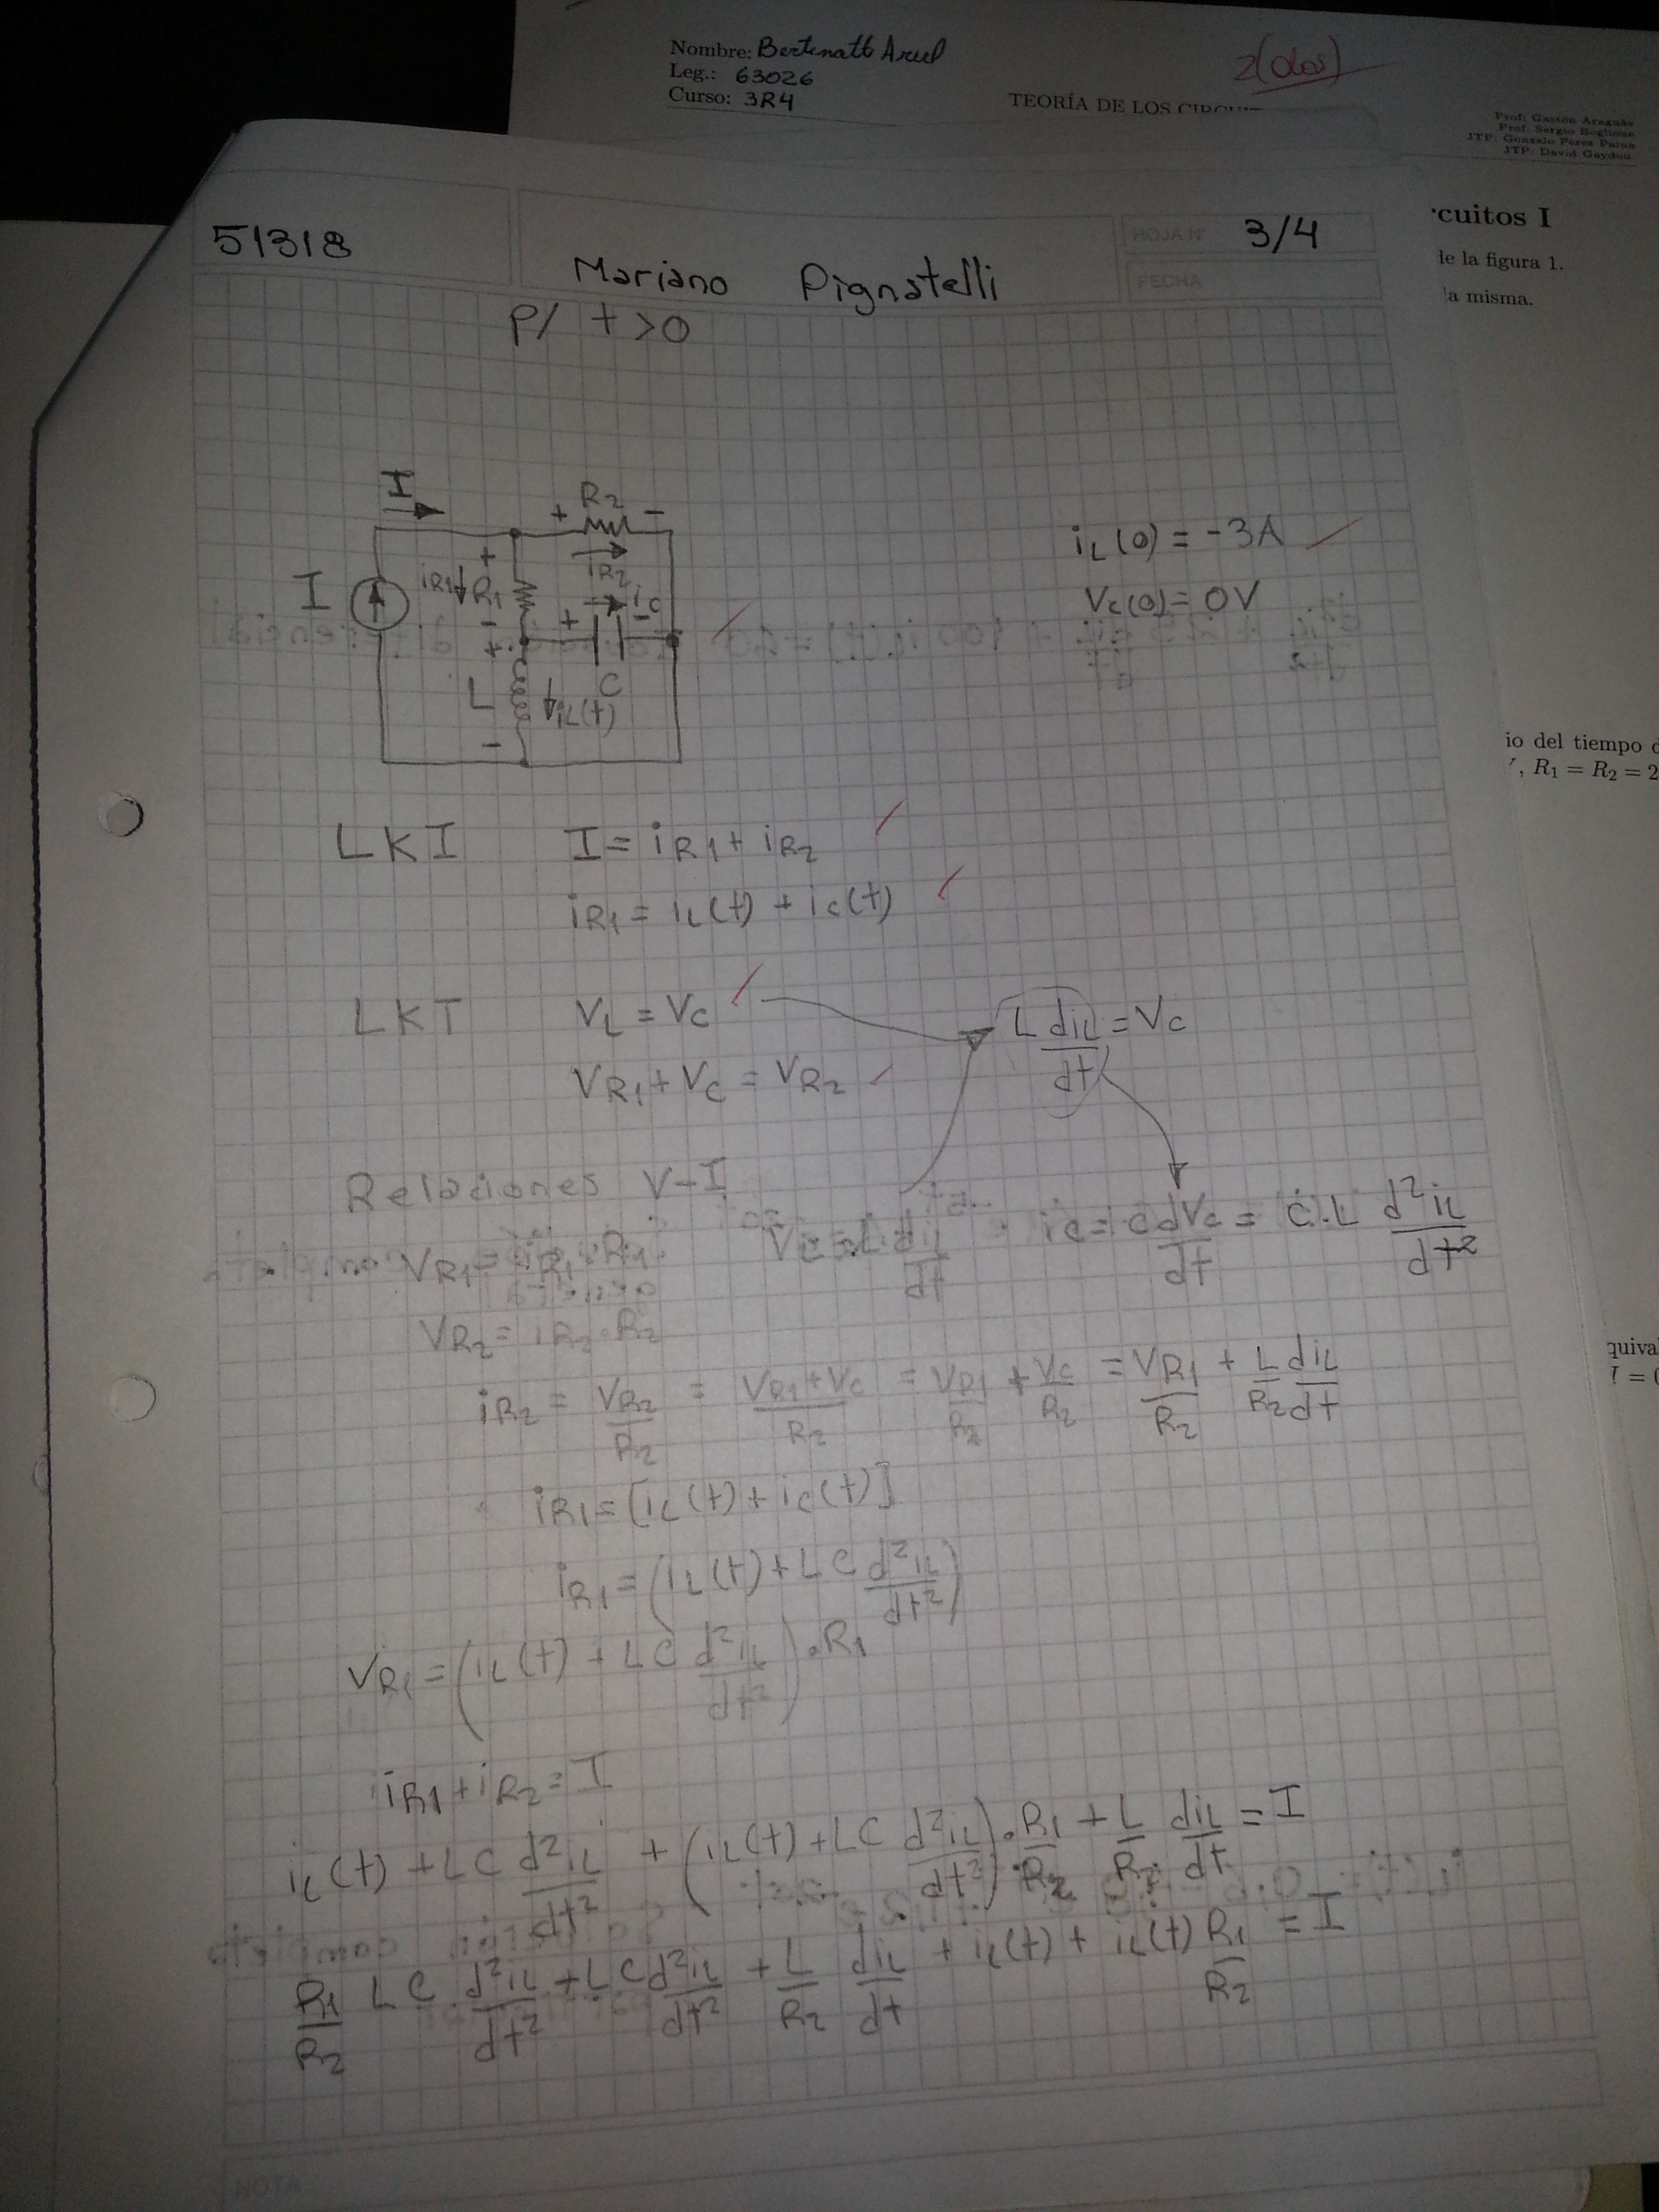 Nombre: Bertinatti Ariel
Leg.: 63026
Curso: 3R4
2(dos)
TEORÍA DE LOS
Prof: Gastón Araguás
Prof: Sergio Boglione
JTP: Gonzalo Perez Paina
JTP: David Gaydou
cuitos I
de la figura 1.
la misma.
51318
Mariano Pignatelli
HOJA N° 3/4
FECHA
P/ t>0
I
R2
+ -
iR2
I
iR1
R1
+
-
iC
+ -
C
+
L
iL(t)
-
iL(0) = -3A
Vc(0) = 0V
io del tiempo
, R1 = R2 = 2
LKI I = iR1 + iR2
iR1 = iL(t) + ic(t)
LKT VL = Vc
L diL/dt = Vc
VR1 + Vc = VR2
Relaciones V-I
VR1 = iR1 . R1
Vc = L diL/dt
ic = c dVc/dt = C.L d²iL/dt²
VR2 = iR2 . R2
quiva
iR2 = VR2/R2 = (VR1+Vc)/R2 = VR1/R2 + Vc/R2 = VR1/R2 + L/R2 diL/dt
iR1 = [iL(t) + ic(t)]
iR1 = (iL(t) + LC d²iL/dt²)
VR1 = (iL(t) + LC d²iL/dt²) . R1
iR1 + iR2 = I
iL(t) + LC d²iL/dt² + (iL(t) + LC d²iL/dt²) . R1/R2 + L/R2 diL/dt = I
R1/R2 LC d²iL/dt² + LC d²iL/dt² + L/R2 diL/dt + iL(t) + iL(t) R1/R2 = I
NOTA